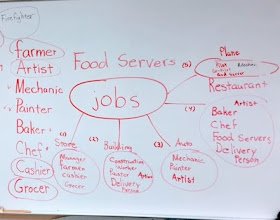 Firefighter
Food Servers
farmer
Artist
Mechanic
Painter
Baker
Chef
Cashier
Grocer
jobs
(1)
Store
Manager
Farmer
cashier
Grocer
(2)
Building
Construction
worker
Painter Artist
Delivery
Person
(3)
Auto
Mechanic
Painter
Artist
(4)
Restaurant
Artist
Baker
Chef
Food Servers
Delivery
Person
(5)
Plane
Pilot
Food Server